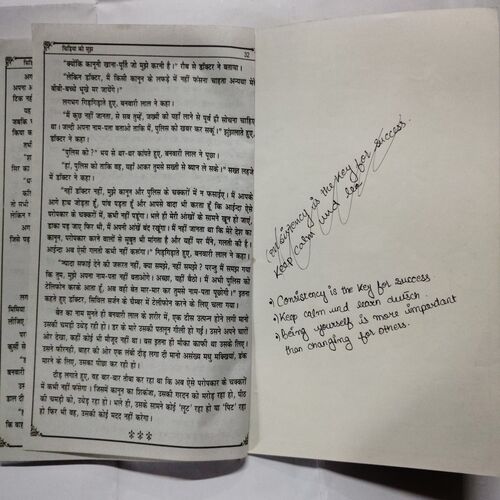 चिड़िया की मूछ
32
"क्योंकि कानूनी खाना-पूर्ति जो मुझे करनी है।" रौब से डॉक्टर ने बताया।
"लेकिन डॉक्टर, मैं किसी कानून के लफड़े में नहीं फंसना चाहता अन्यथा मेरे
बीबी-बच्चे भूखे मर जायेंगे।"
लगभग गिड़गिड़ाते हुए, बनवारी लाल ने कहा।
"मैं कुछ नहीं जानता, से सब तुम्हें, जख्मी को यहाँ लाने से पूर्व ही सोचना चाहिए
था। जल्दी अपना नाम-पता बताओ ताकि मैं, पुलिस को खबर कर सकूं।" झुंझलाते हुए,
डॉक्टर ने कहा।
"पुलिस को?" भय से थर-थर कांपते हुए, बनवारी लाल ने पूछा।
"हां, पुलिस को ताकि वह, यहाँ आकर तुमसे सख्ती से ब्यान ले सके।" सख्त लहजे
में डॉक्टर ने कहा।
"नहीं डॉक्टर नहीं, मुझे कानून और पुलिस के चक्करों में न फसाईए। मैं आपके
आगे हाथ जोड़ता हूँ, पांव पड़ता हूँ और आपसे वादा भी करता हूँ कि आईन्दा ऐसे
परोपकार के चक्करों में, कभी नहीं पडूंगा। भले ही मेरी आंखों के सामने खून हो जाएं,
डाका पड़ जाए फिर भी, मैं अपनी आंखें बंद रखूंगा। मैं नहीं जानता था कि मेरे देश का
कानून, परोपकार करने वालों से सुबूत भी मांगता है और यहीं पर मैंने, गलती की है।
आईन्दा अब ऐसी गलती कभी नहीं करूंगा।" गिड़गिड़ाते हुए, बनवारी लाल ने कहा।
"ज्यादा सफाई देने की जरूरत नहीं, क्या समझे, नहीं समझे? परन्तु मैं समझ गया
कि तुम, मुझे अपना नाम-पता नहीं बताओगे। अच्छा, यहाँ बैठो। मैं अभी पुलिस को
टेलीफोन करके आता हूँ, अब वही बेंत मार-मार कर तुमसे नाम-पता पूछेगी।" इतना
कहते हुए डॉक्टर, सिविल सर्जन के चैम्बर में टेलीफोन करने के लिए चला गया।
बेंत का नाम सुनते ही बनवारी लाल के शरीर में, एक टीस उत्पन्न होने लगी मानो
उसकी चमड़ी उधेड़ रही हो। डर के मारे उसकी पतलून गीली हो गई। उसने अपने चारों
ओर देखा, कहीं कोई भी मौजूद नहीं था। बस इतना ही मौका काफी था उसके लिए।
उसने फौरनही, बाहर की ओर एक लंबी दौड़ लगा दी मानो असंख्य मधु मक्खियां, डंक
मारने के लिए, उसका पीछा कर रही हो।
दौड़ लगाते हुए, वह बार-बार तौबा कर रहा था कि अब ऐसे परोपकार के चक्करों
में कभी नहीं फंसेगा। जिसमें कानून का शिकंजा, उसकी गरदन को मरोड़ रहा हो, पीठ
की चमड़ी को, उधेड़ रहा हो। भले ही, उसके सामने कोई 'लुट' रहा हो या 'पिट' रहा
हो फिर भी वह, उसकी कोई मदद नहीं करेगा।
Consistency is the key for success.
Keep calm und
→ Consistency is the key for success
→ Keep calm und learn dutsch
→ Being yourself is more impordant
than changing for others.